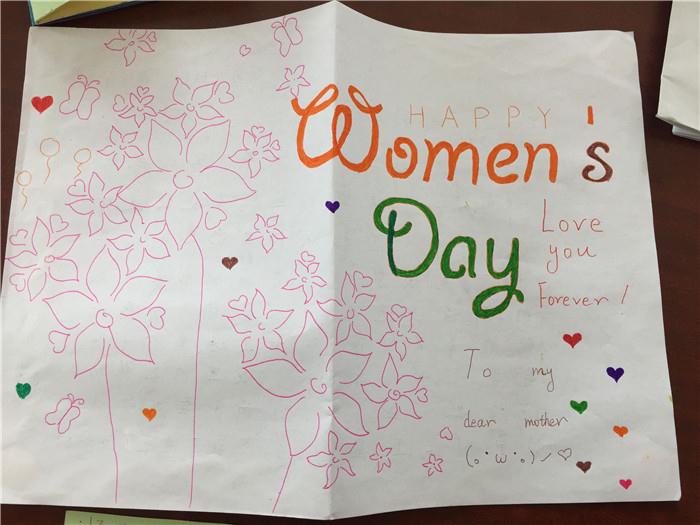 HAPPY
Women's
Day
Love
you
Forever!
To my
dear mother
(｡･ω･｡)ノ♡